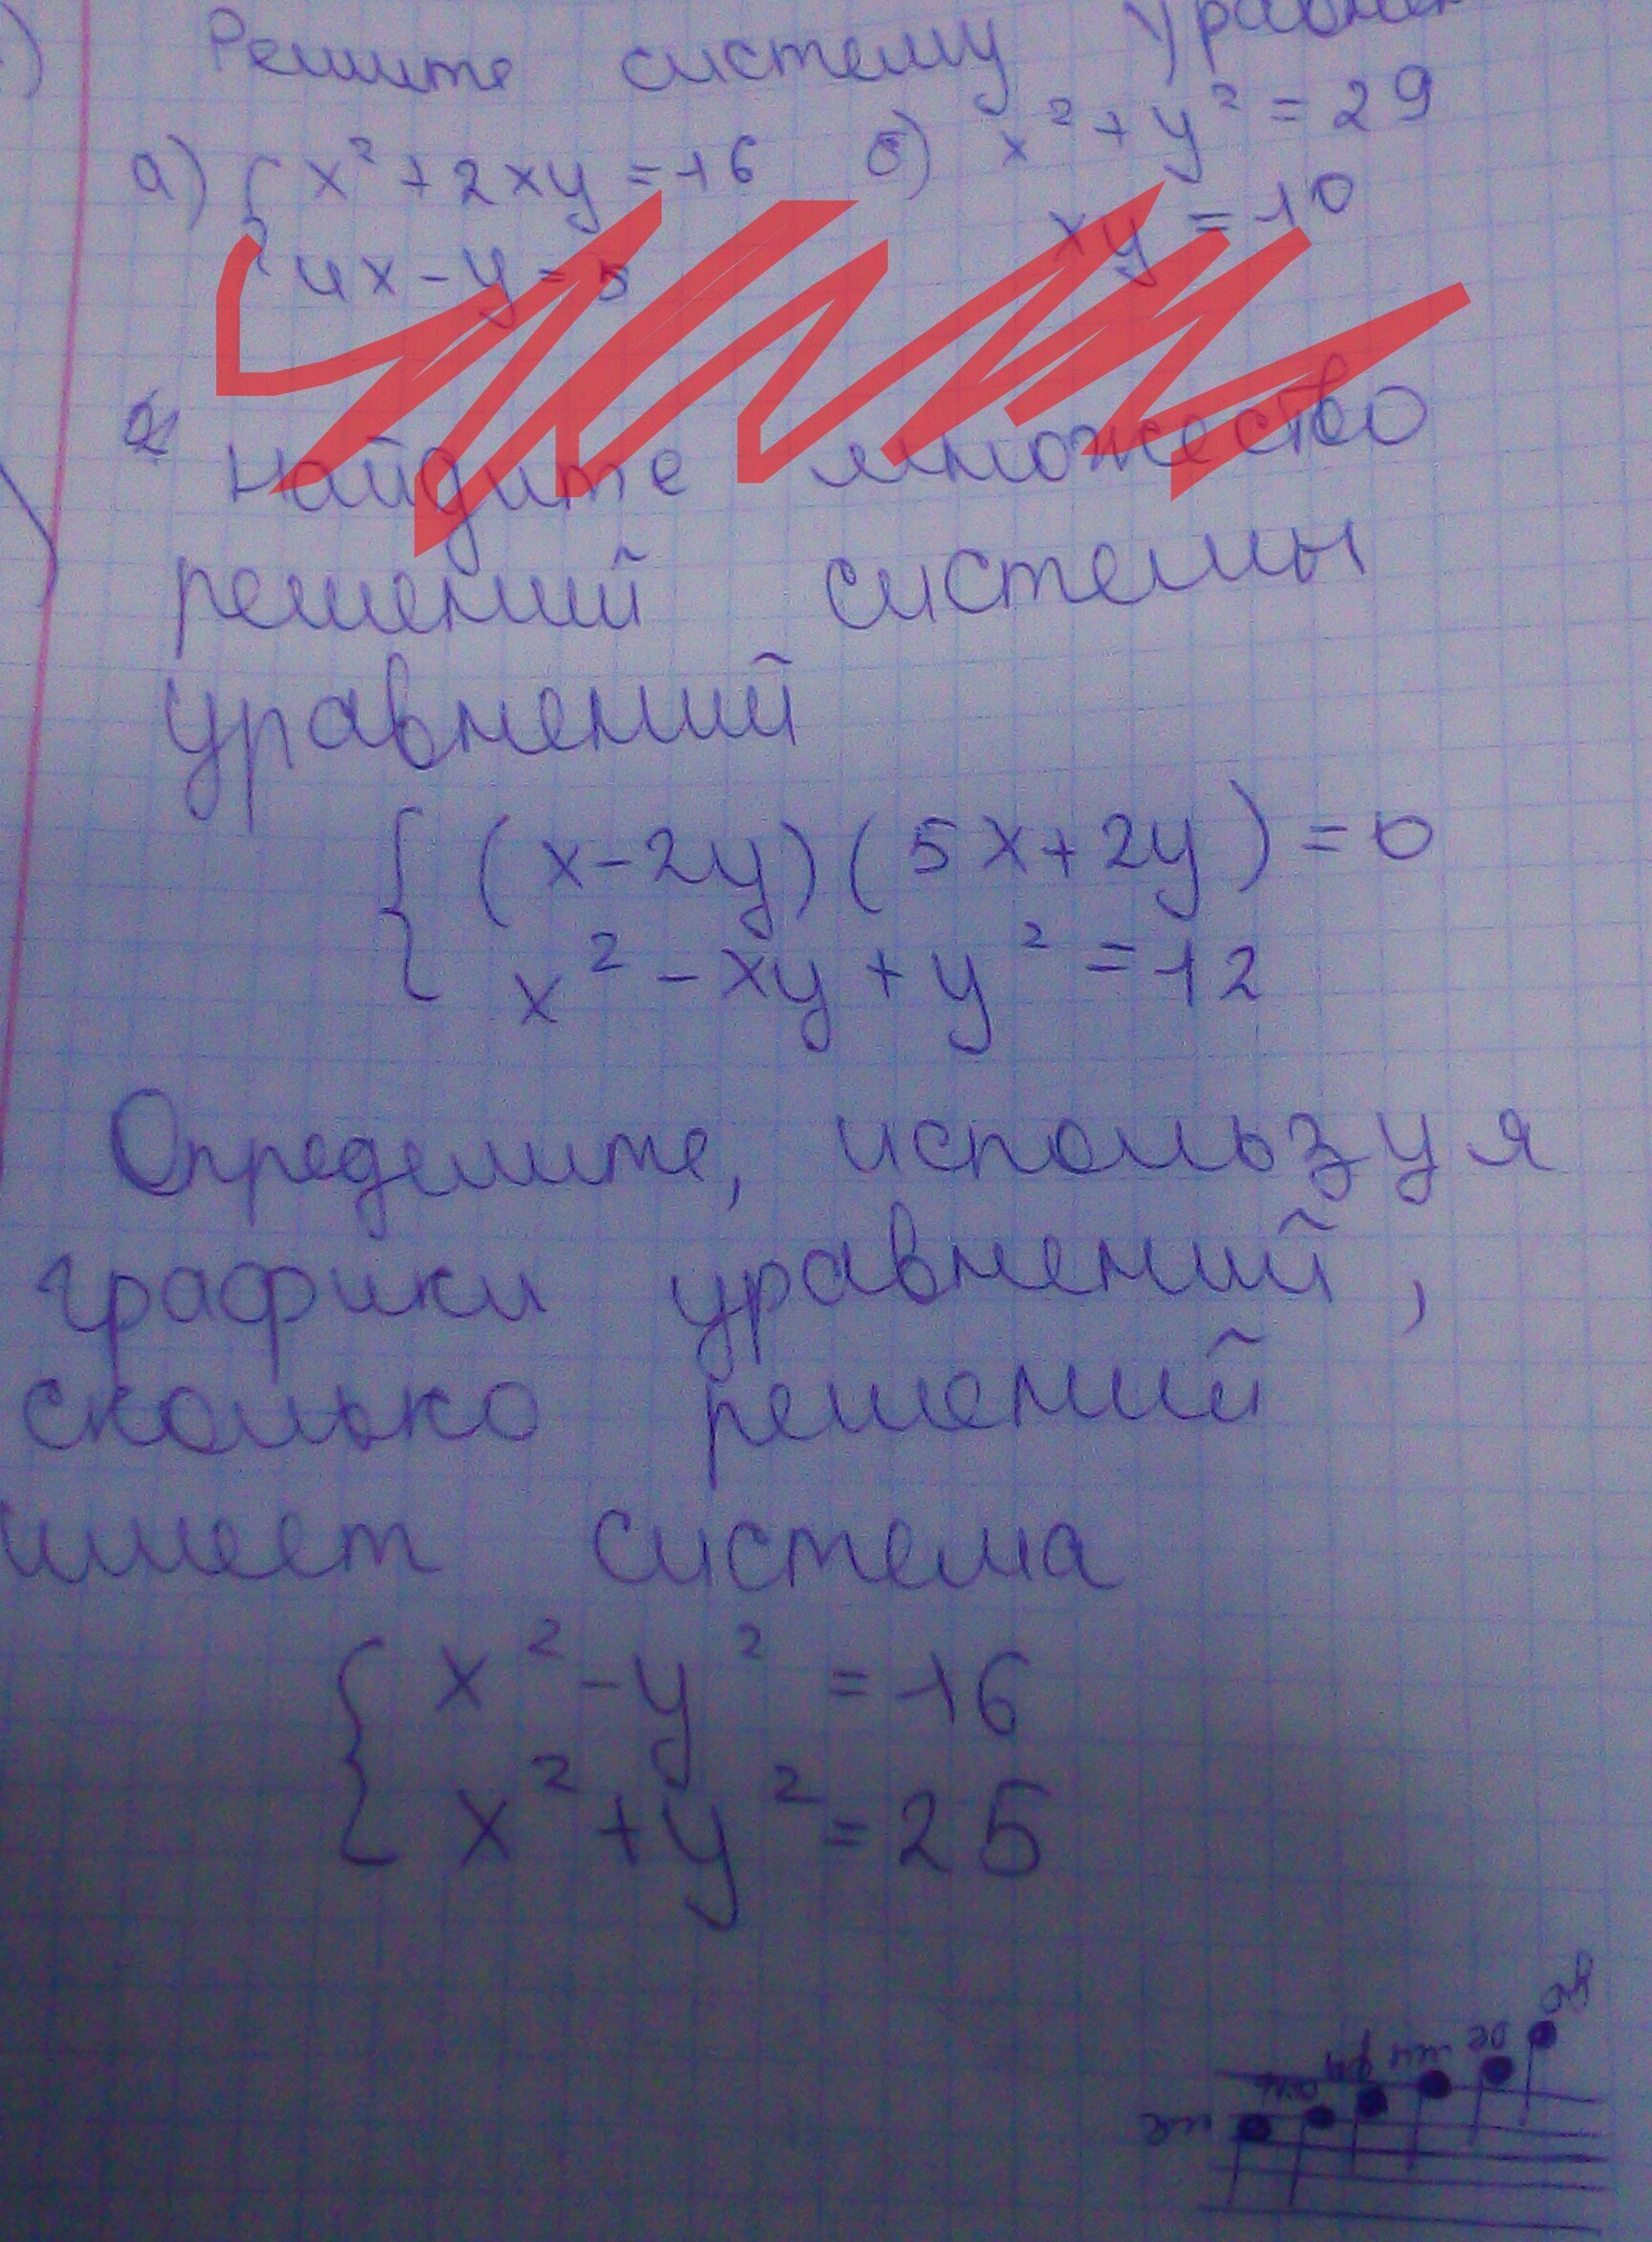 Решите систему уравнен
а) { x² + 2xy = 16 б) x² + y² = 29
4x - y = 5 xy = 10
2 Найдите множество
решений системы
уравнений
{ (x - 2y)(5x + 2y) = 0
x² - xy + y² = 12
Определите, используя
графики уравнений,
сколько решений
имеет система
{ x² - y² = 16
x² + y² = 25